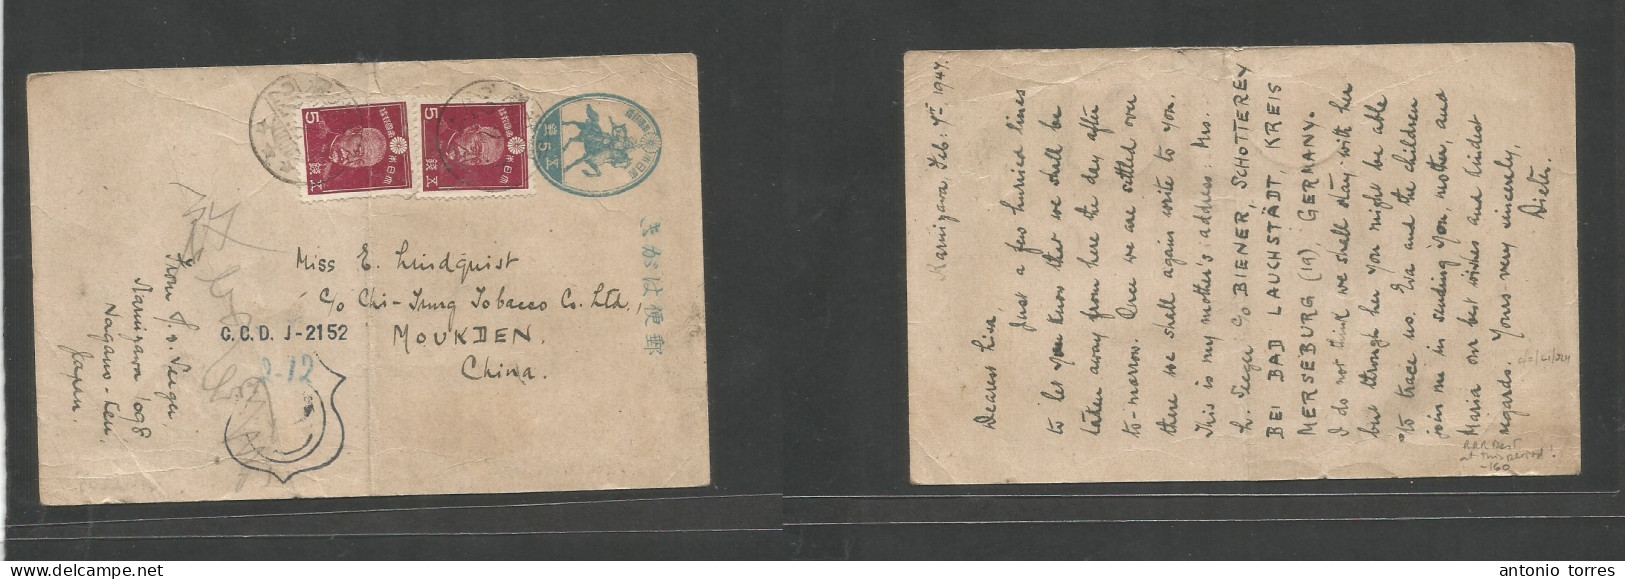 5
5
五銭
五銭
大日本帝国郵便
大日本帝国郵便
五銭
きがは便郵
Miss E. Lindquist
c/o Chi-Tung Tobacco Co. Ltd.,
MOUKDEN.
China.
C.C.D. J-2152
2-12
From
Karuizawa 1098
Nagano-Ken,
Japan.
Karuizawa, Feb. 7th 1947.
Dearest Live,
Just a few hurried lines
to let you know that we shall be
taken away from here the day after
to-morrow. Once we are settled over
there we shall again write to you.
This is my mother's address: Mrs.
h. Seeger c/o BIENER, SCHOTTEREY
BEI BAD LAUCHSTÄDT, KREIS
MERSEBURG (19) GERMANY.
I do not think we shall stay with her
but through her you might be able
to trace us. Eva and the children
join me in sending you, mother, and
Maria our best wishes and kindest
regards. Yours very sincerely,
Dieter.
RRR Dest
at this period!
-160
antonio torres